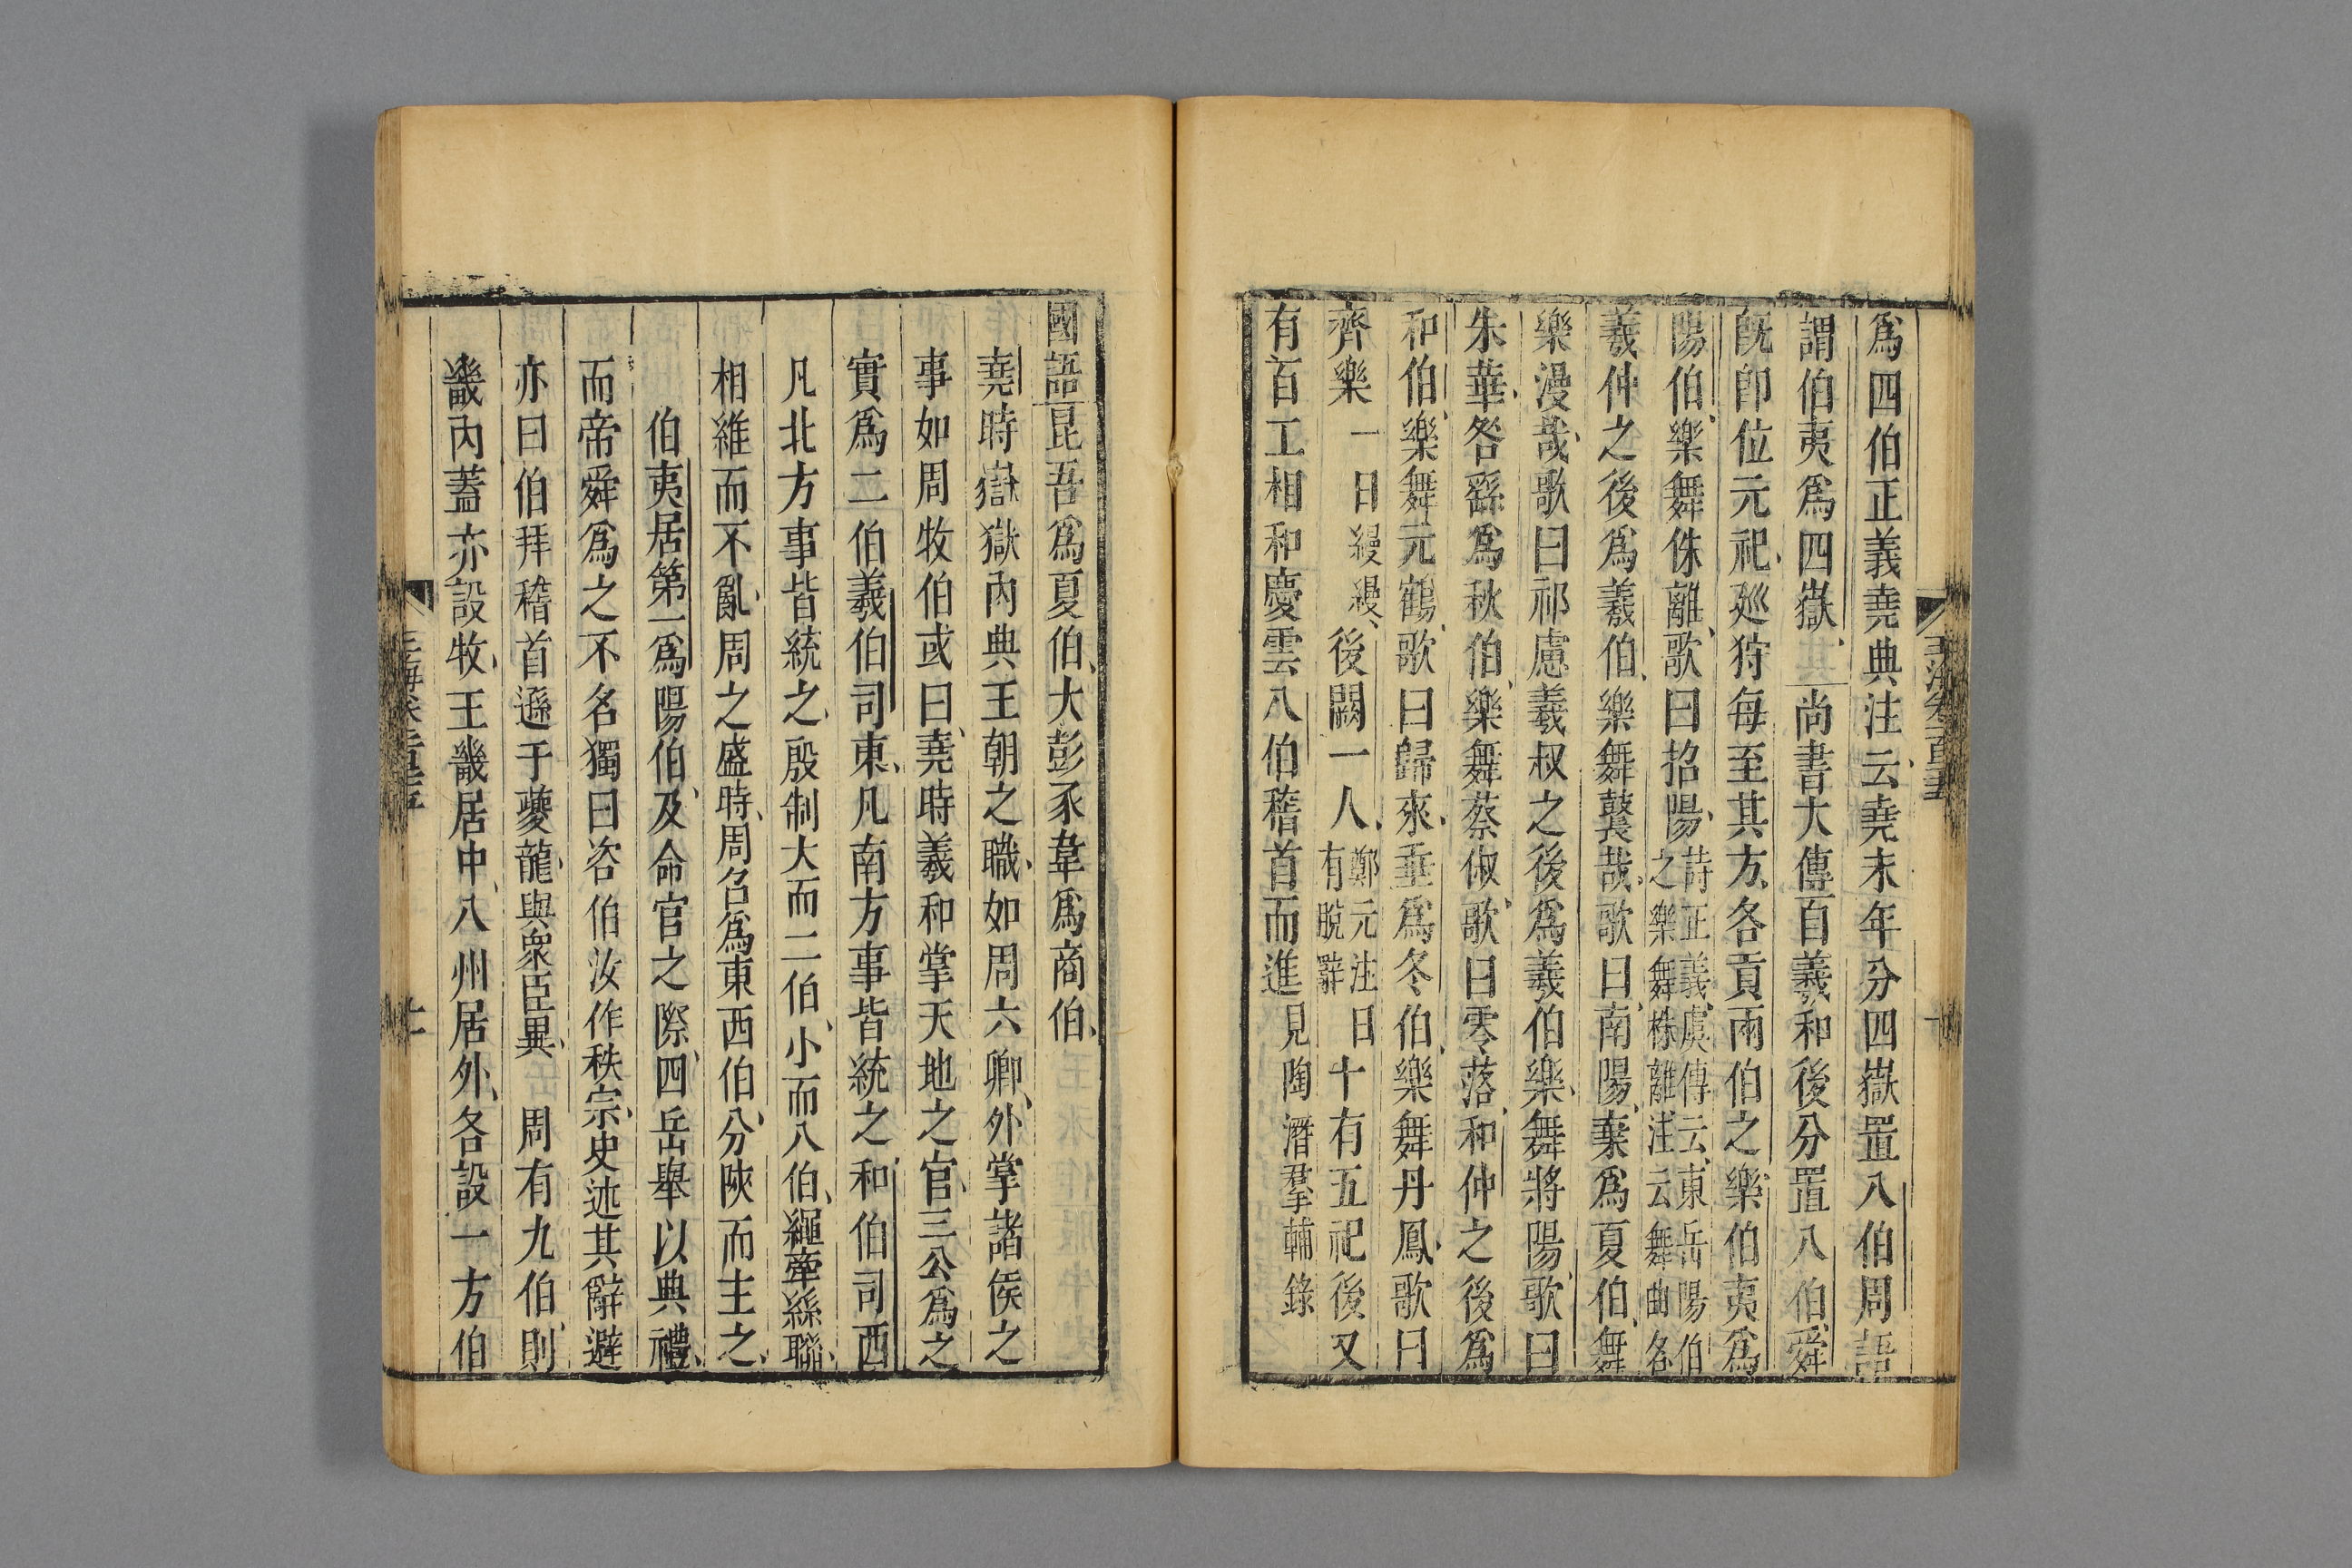 爲四伯正義堯典注云堯末年分四嶽置八伯周語
謂伯夷爲四嶽其尚書大傳百羲和後分置八伯舜
旣卽位元祀廵狩每至其方各貢兩伯之樂伯夷爲
陽伯樂舞侏離歌曰招陽詩正義虞傳云東岳陽伯
之樂舞株離注云舞曲名
羲仲之後爲羲伯樂舞鼚哉歌曰南陽棄爲夏伯舞
樂漫哉歌曰祁慮羲叔之後爲羲伯樂舞將陽歌曰
朱華咎繇爲秋伯樂舞蔡俶歌曰零落和仲之後爲
和伯樂舞元鶴歌曰歸來垂爲冬伯樂舞丹鳳歌曰
齊樂一曰縵縵後闕一人鄭元注曰
有脫辭十有五祀後又
有百工相和慶雲八伯稽首而進見陶潛羣輔錄
國語昆吾爲夏伯大彭豕韋爲商伯
堯時嶽嶽內典王朝之職如周六卿外掌諸侯之
事如周牧伯或曰堯時羲和掌天地之官三公爲之
實爲二伯羲伯司東凡南方事皆統之和伯司西
凡北方事皆統之殷制大而二伯小而八伯繩牽繇聯
相維而不亂周之盛時周召爲東西伯分陝而主之
伯夷居第一爲陽伯及命官之際四岳舉以典禮
而帝舜爲之不名獨曰咨伯汝作秩宗史述其辭避
亦曰伯拜稽首遜于夔龍與衆臣異周有九伯則
畿內蓋亦設牧王畿居中八州居外各設一方伯